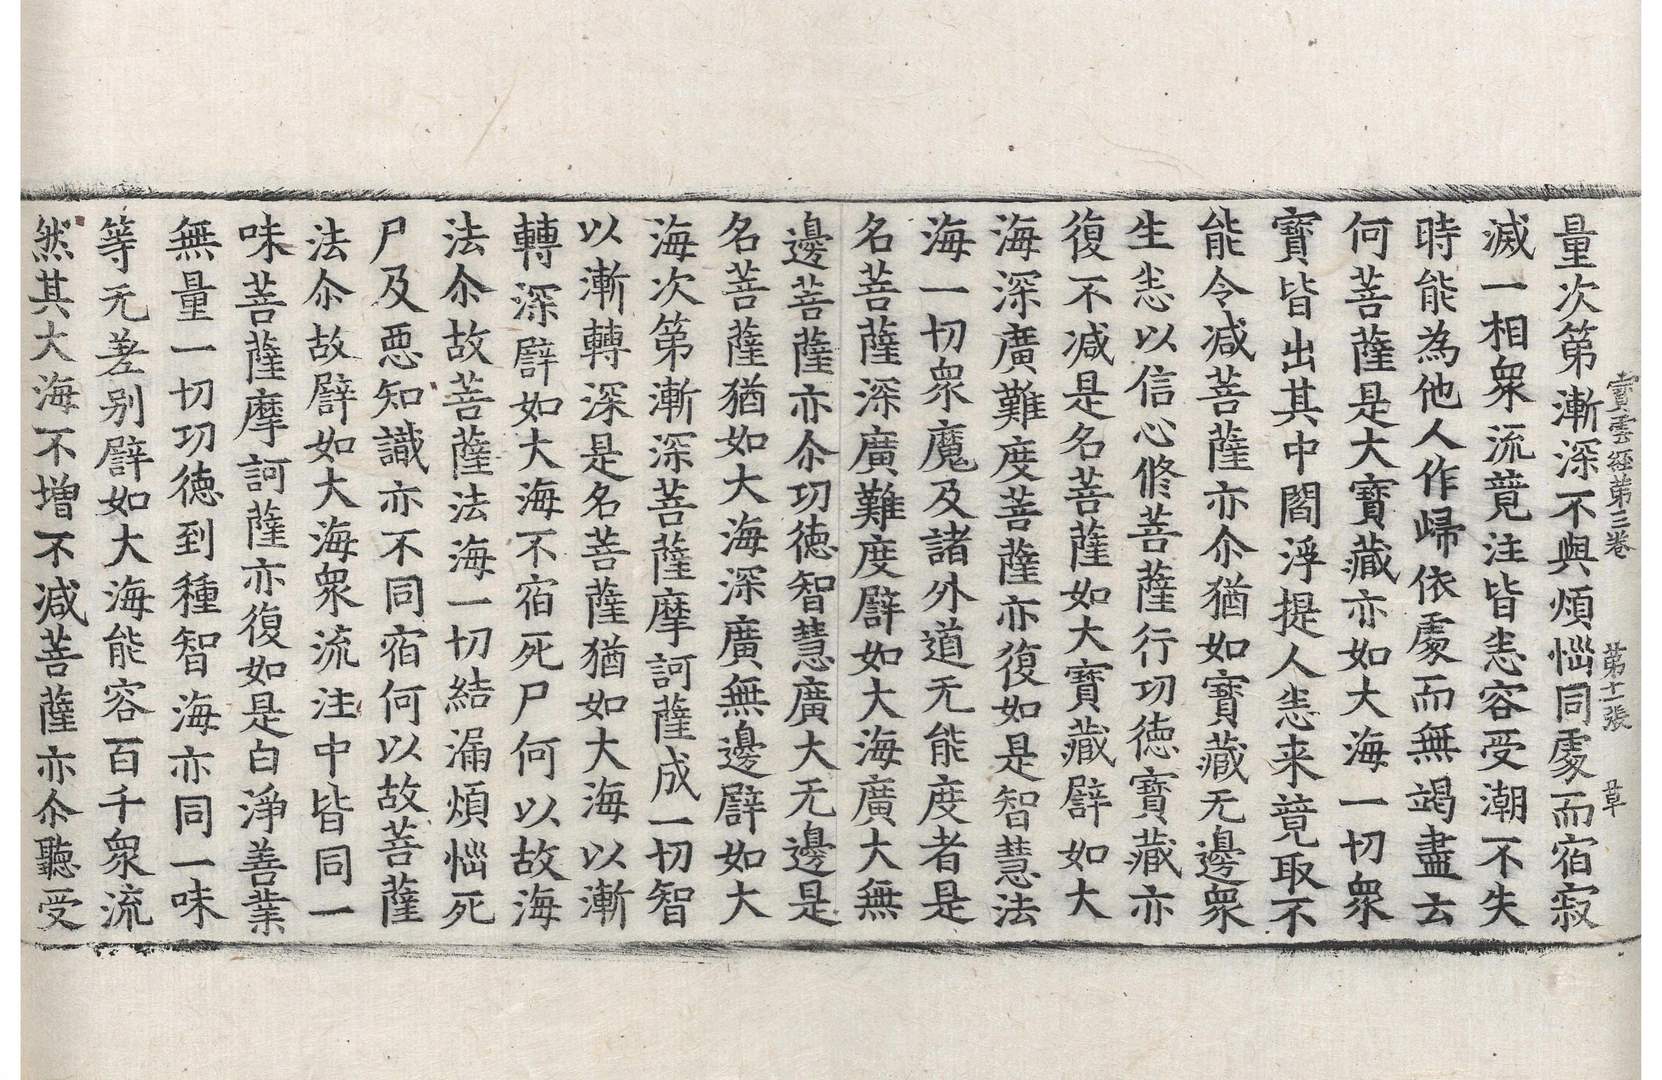 寶雲経苐三卷 苐十一張 草
量次苐漸深不與煩惱同䖏而宿寂
滅一相衆流竟注皆恚容受潮不失
時能為他人作歸依䖏而無竭盡云
何菩薩是大寶藏亦如大海一切衆
寶皆出其中閻浮提人恚来竟取不
能令減菩薩亦尒猶如寶藏无邊衆
生恚以信心修菩薩行功徳寶藏亦
復不減是名菩薩如大寶藏譬如大
海深廣難度菩薩亦復如是智慧法
海一切衆魔及諸外道无能度者是
名菩薩深廣難度譬如大海廣大無
邊菩薩亦尒功徳智慧廣大无邊是
名菩薩猶如大海深廣無邊譬如大
海次苐漸深菩薩摩訶薩成一切智
以漸轉深是名菩薩猶如大海以漸
轉深譬如大海不宿死尸何以故海
法尒故菩薩法海一切結漏煩惱死
尸及悪知識亦不同宿何以故菩薩
法尒故譬如大海衆流注中皆同一
味菩薩摩訶薩亦復如是白淨善業
無量一切功徳到種智海亦同一味
等无差别譬如大海能容百千衆流
然其大海不増不減菩薩亦尒聽受